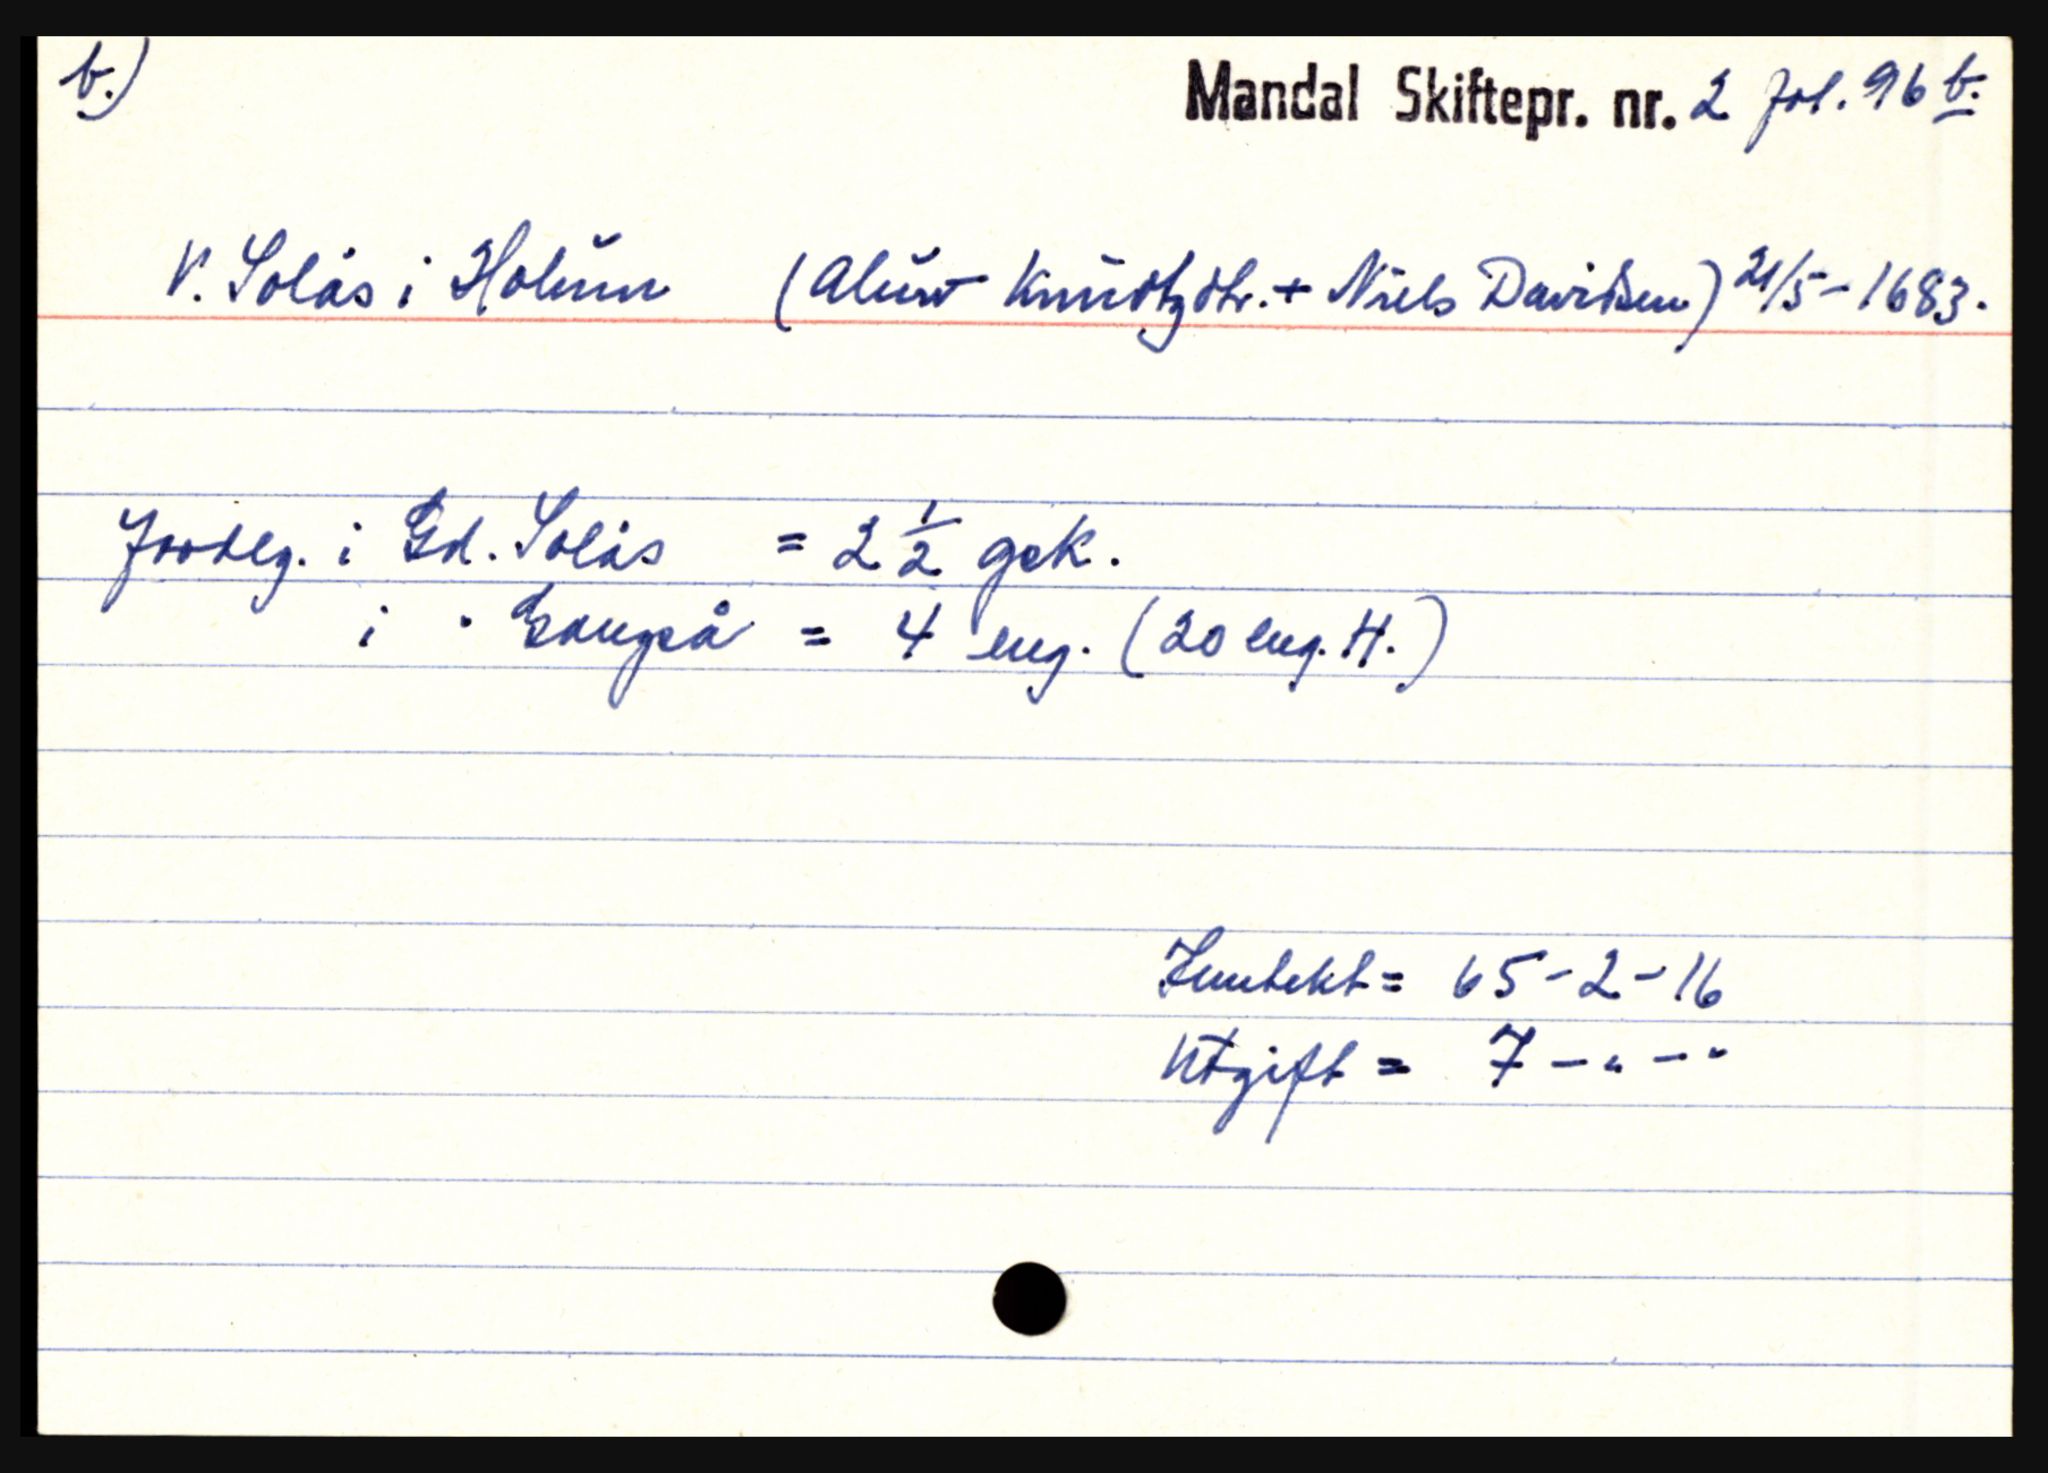 b.)
Mandal Skiftepr. nr. 2 fol. 96 b.
V. Solås i Holum (Alluw Knudtzdtr. + Niels Davidsen) 21/5-1683.
Jordeg. i Gd. Solås = 2 1/2 gek.
i " Gangså = 4 eng. (20 eng. H.)
Inntekt = 65-2-16
Utgift = 7-"-"